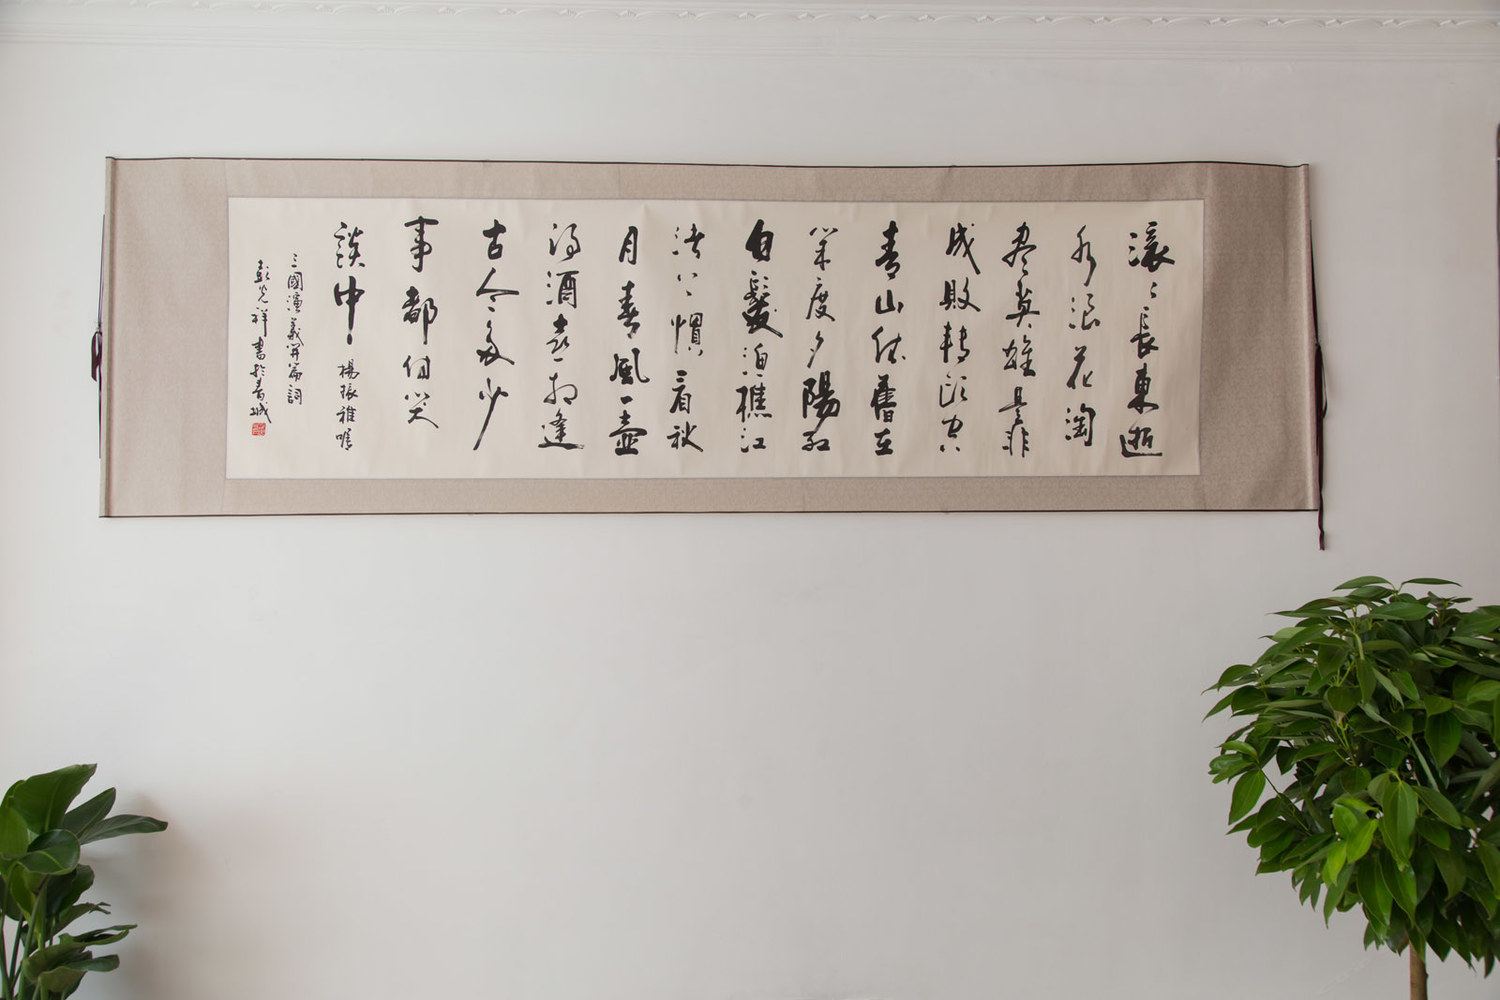 滚〻長東逝
水浪花淘
尽英雄是非
成敗轉頭空
青山依舊在
幾度夕陽紅
白髮漁樵江
渚上慣看秋
月春風一壺
濁酒喜相逢
古今多少
事都付笑
談中 楊振雅囑
三國演義開篇詞
彭光祥書於青城